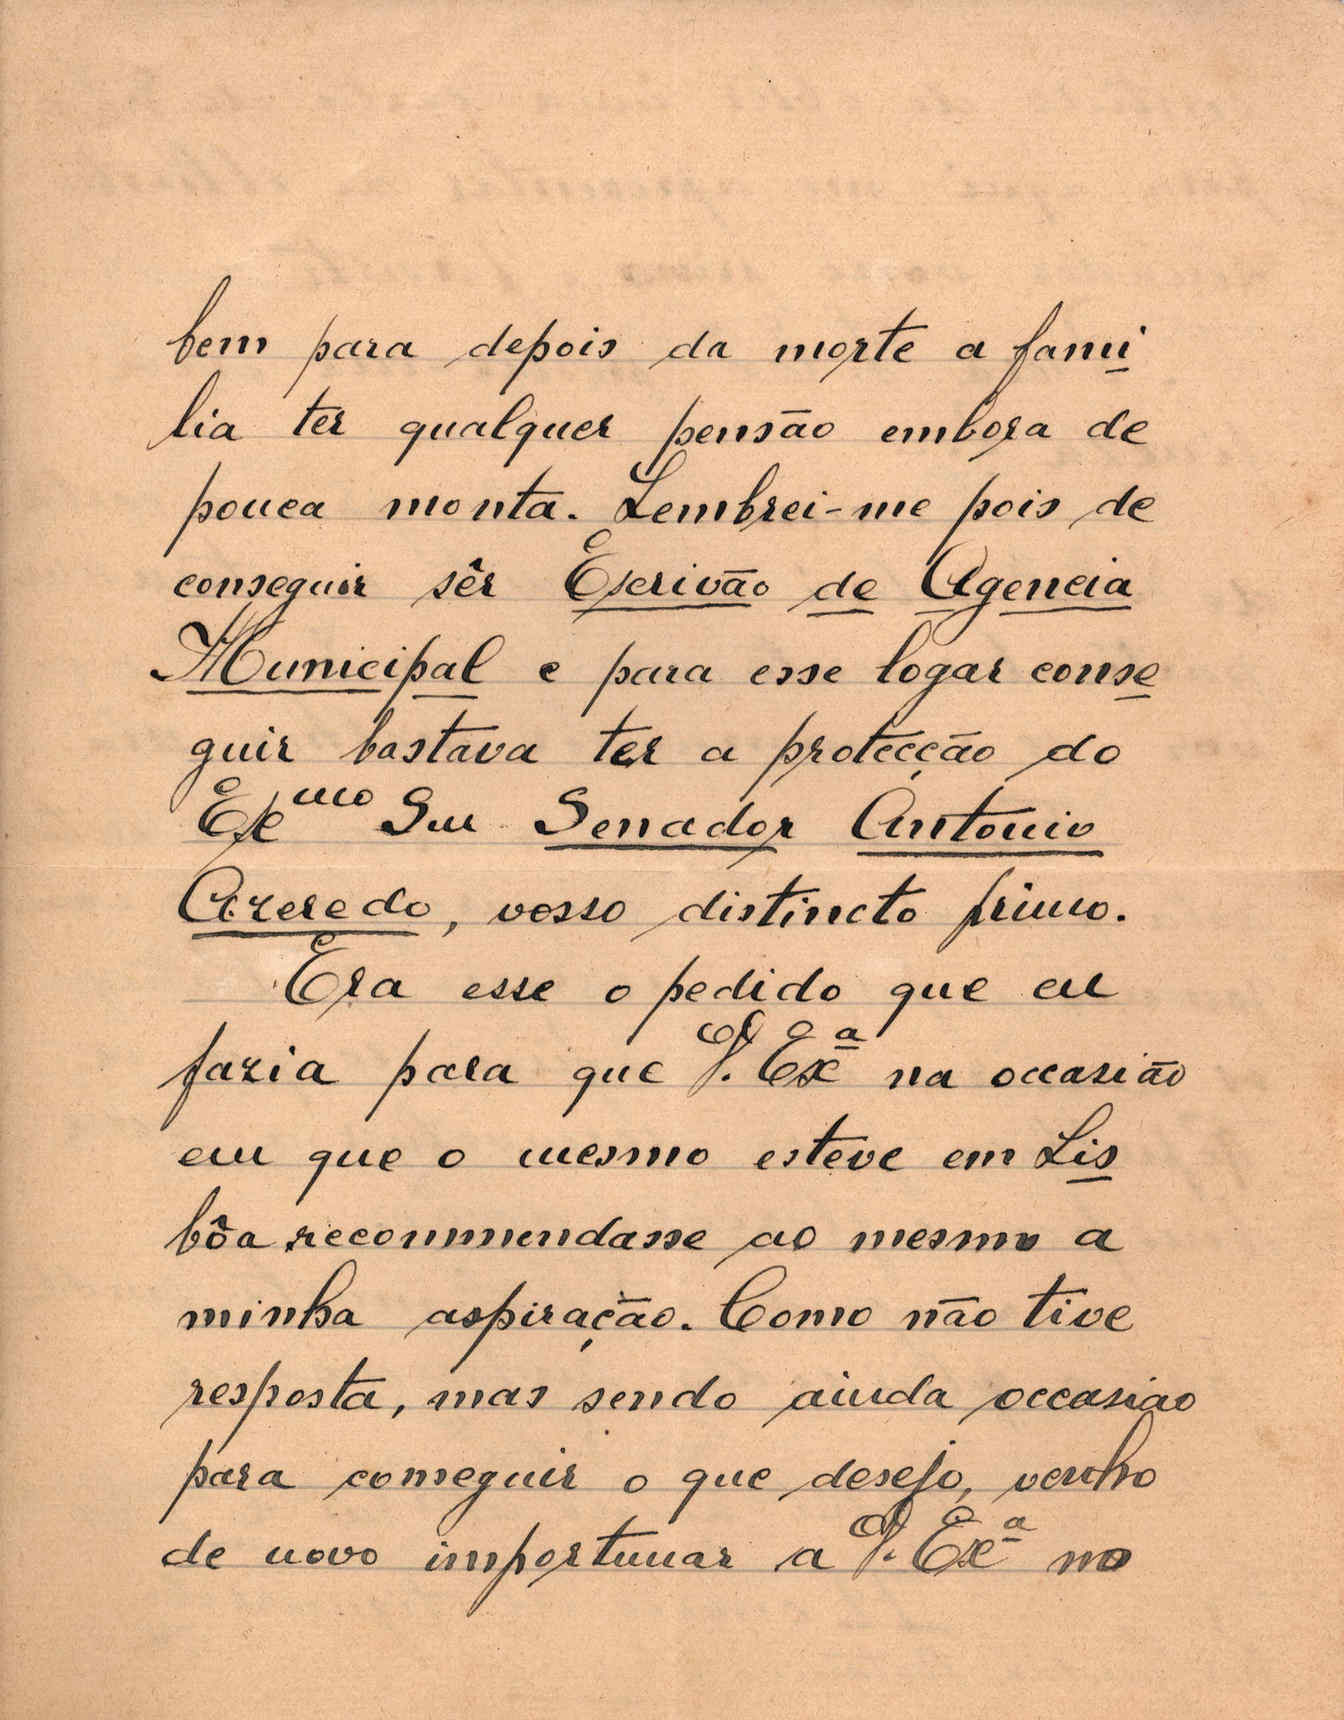 bem para depois da morte a fami
lia ter qualquer pensão embora de
pouca monta. Lembrei-me pois de
conseguir sêr Escrivão de Agencia
Municipal e para esse logar conse
guir bastava ter a protecção do
Exmo Snr Senador Antonio
Azeredo, vosso distincto primo.
Era esse o pedido que eu
fazia para que V. Exª na occasião
em que o mesmo esteve em Lis
bôa recommendasse ao mesmo a
minha aspiração. Como não tive
resposta, mas sendo ainda occasiao
para conseguir o que desejo, venho
de novo importunar a V. Exª no